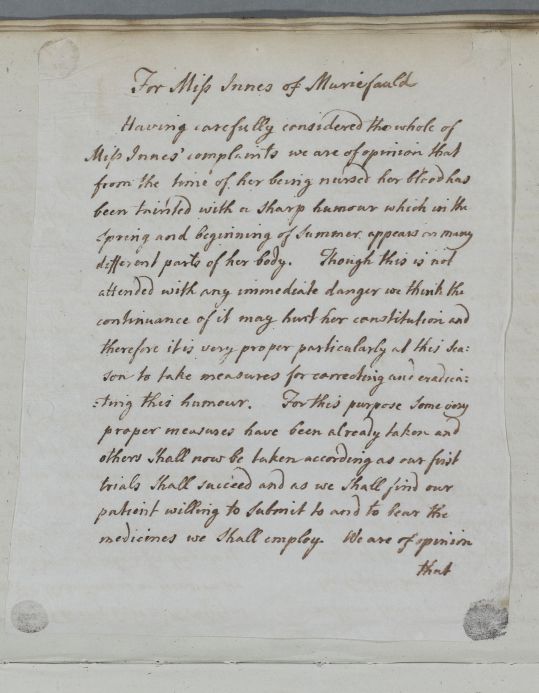 For Miſs Innes of Muriefauld
Having carefully considered the whole of
Miſs Innes' complaints we are of opinion that
from the time of her being nursed her blood has
been tainted with a sharp humour which in the
spring and beginning of summer appears in many
different parts of her body. Though this is not
attended with any immediate danger we think the
continuance of it may hurt her constitution and
therefore it is very proper particularly at this sea:
son to take measures for correcting and eradica:
:ting this humour. For this purpose some very
proper measures have been already taken and
others shall now be taken according as our first
trials shall succeed and as we shall find our
patient willing to submit to and to bear the
medicines we shall employ. We are of opinion
that